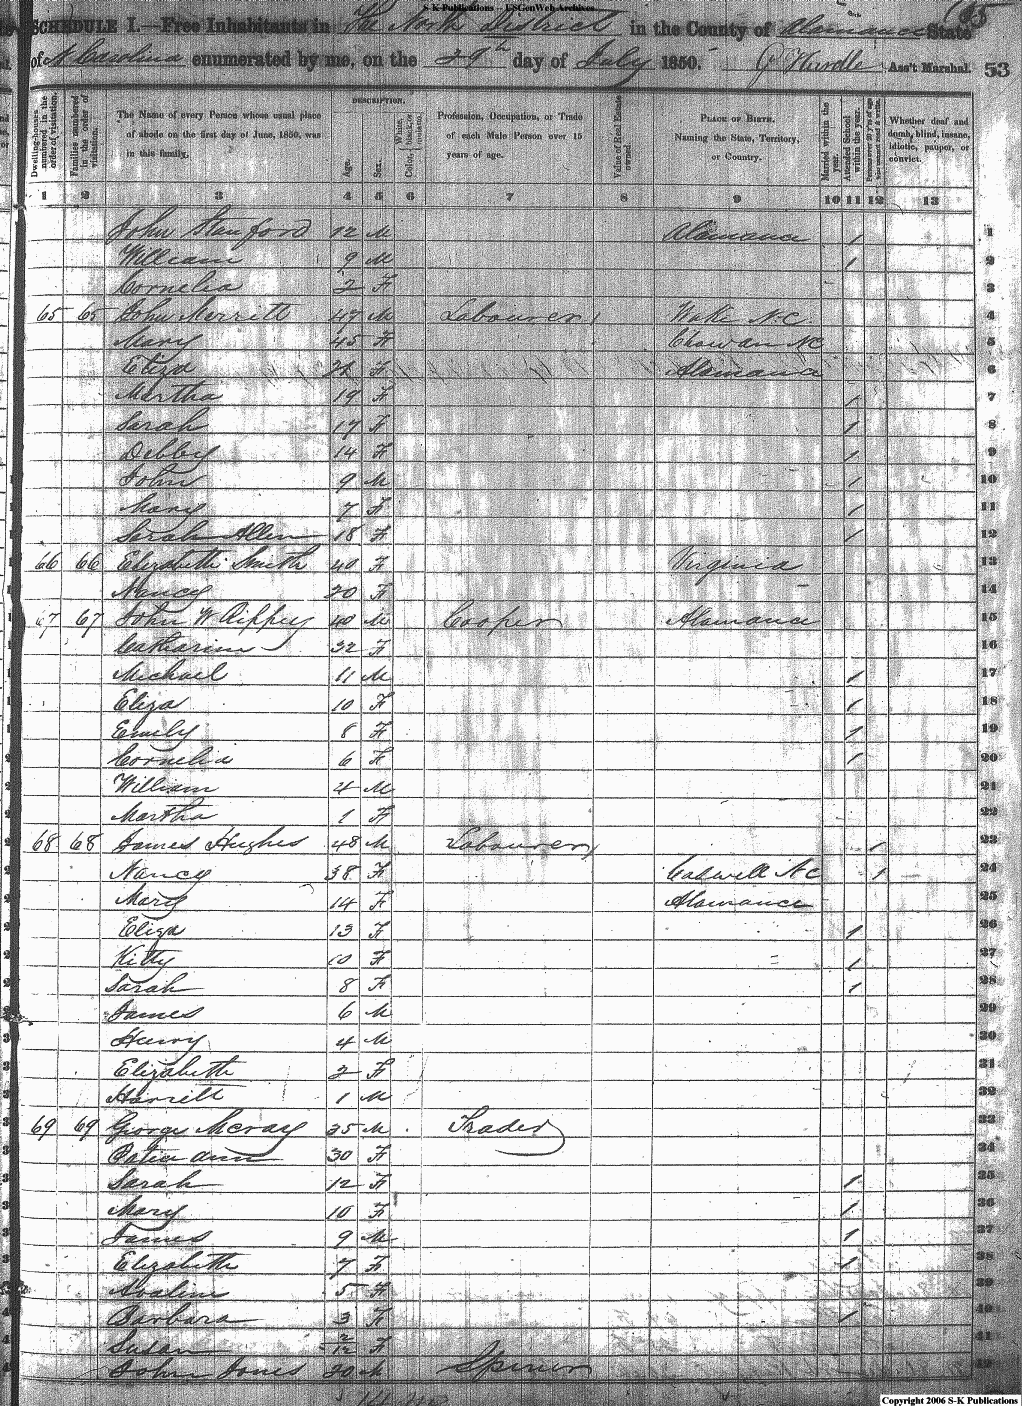 S-K Publications – USGenWeb Archives
SCHEDULE I.—Free Inhabitants in The North District in the County of Alamance State
of N Carolina enumerated by me, on the 29th day of July 1850. Ass't Marshal. 53
Dwelling-houses numbered in the order of visitation.
Families numbered in the order of visitation.
The Name of every Person whose usual place of abode on the first day of June, 1850, was in this family.
DESCRIPTION.
Age.
Sex.
Color,
White, black, or mulatto.
Profession, Occupation, or Trade of each Male Person over 15 years of age.
Value of Real Estate owned.
PLACE OF BIRTH. Naming the State, Territory, or Country.
Married within the year.
Attended School within the year.
Whether deaf and dumb, blind, insane, idiotic, pauper, or convict.
1 2 3 4 5 6 7 8 9 10 11 12 13
John Stanford 12 M Alamance 1 1
William 9 M 1 2
Cornelia 2 F 3
65 65 John Merritt 47 M Labourer Wake N.C. 4
Mary 45 F Chowan NC 5
Eliza F Alamance 6
Martha 19 F 1 7
Sarah 17 F 1 8
Debby 14 F 1 9
John 9 M 1 10
Mary 7 F 1 11
Sarah Allen 18 F 1 12
66 66 Elizabeth Smith 40 F Virginia 13
Nancy 20 F 14
67 67 John W Rippey 40 M Cooper Alamance 15
Catharine 32 F 16
Michael 11 M 1 17
Eliza 10 F 1 18
Emily 8 F 1 19
Cornelia 6 F 1 20
William 4 M 21
Martha 1 F 22
68 68 James Hughes 48 M Labourer 1 23
Nancy 38 F Caswell NC 1 24
Mary 14 F Alamance 25
Eliza 13 F 1 26
Kitty 10 F 1 27
Sarah 8 F 1 28
James 6 M 29
Henry 4 M 30
Elizabeth 2 F 31
Harriett 1 M 32
69 69 George Mcray 35 M Trader 33
ann 30 F 34
Sarah 12 F 1 35
Mary 10 F 1 36
James 9 M 1 37
Elizabeth 7 F 1 38
5 F 39
Barbara 3 F 1 40
Susan 2/12 F 41
John Jones 20 M Spiner 42
Copyright 2006 S-K Publications